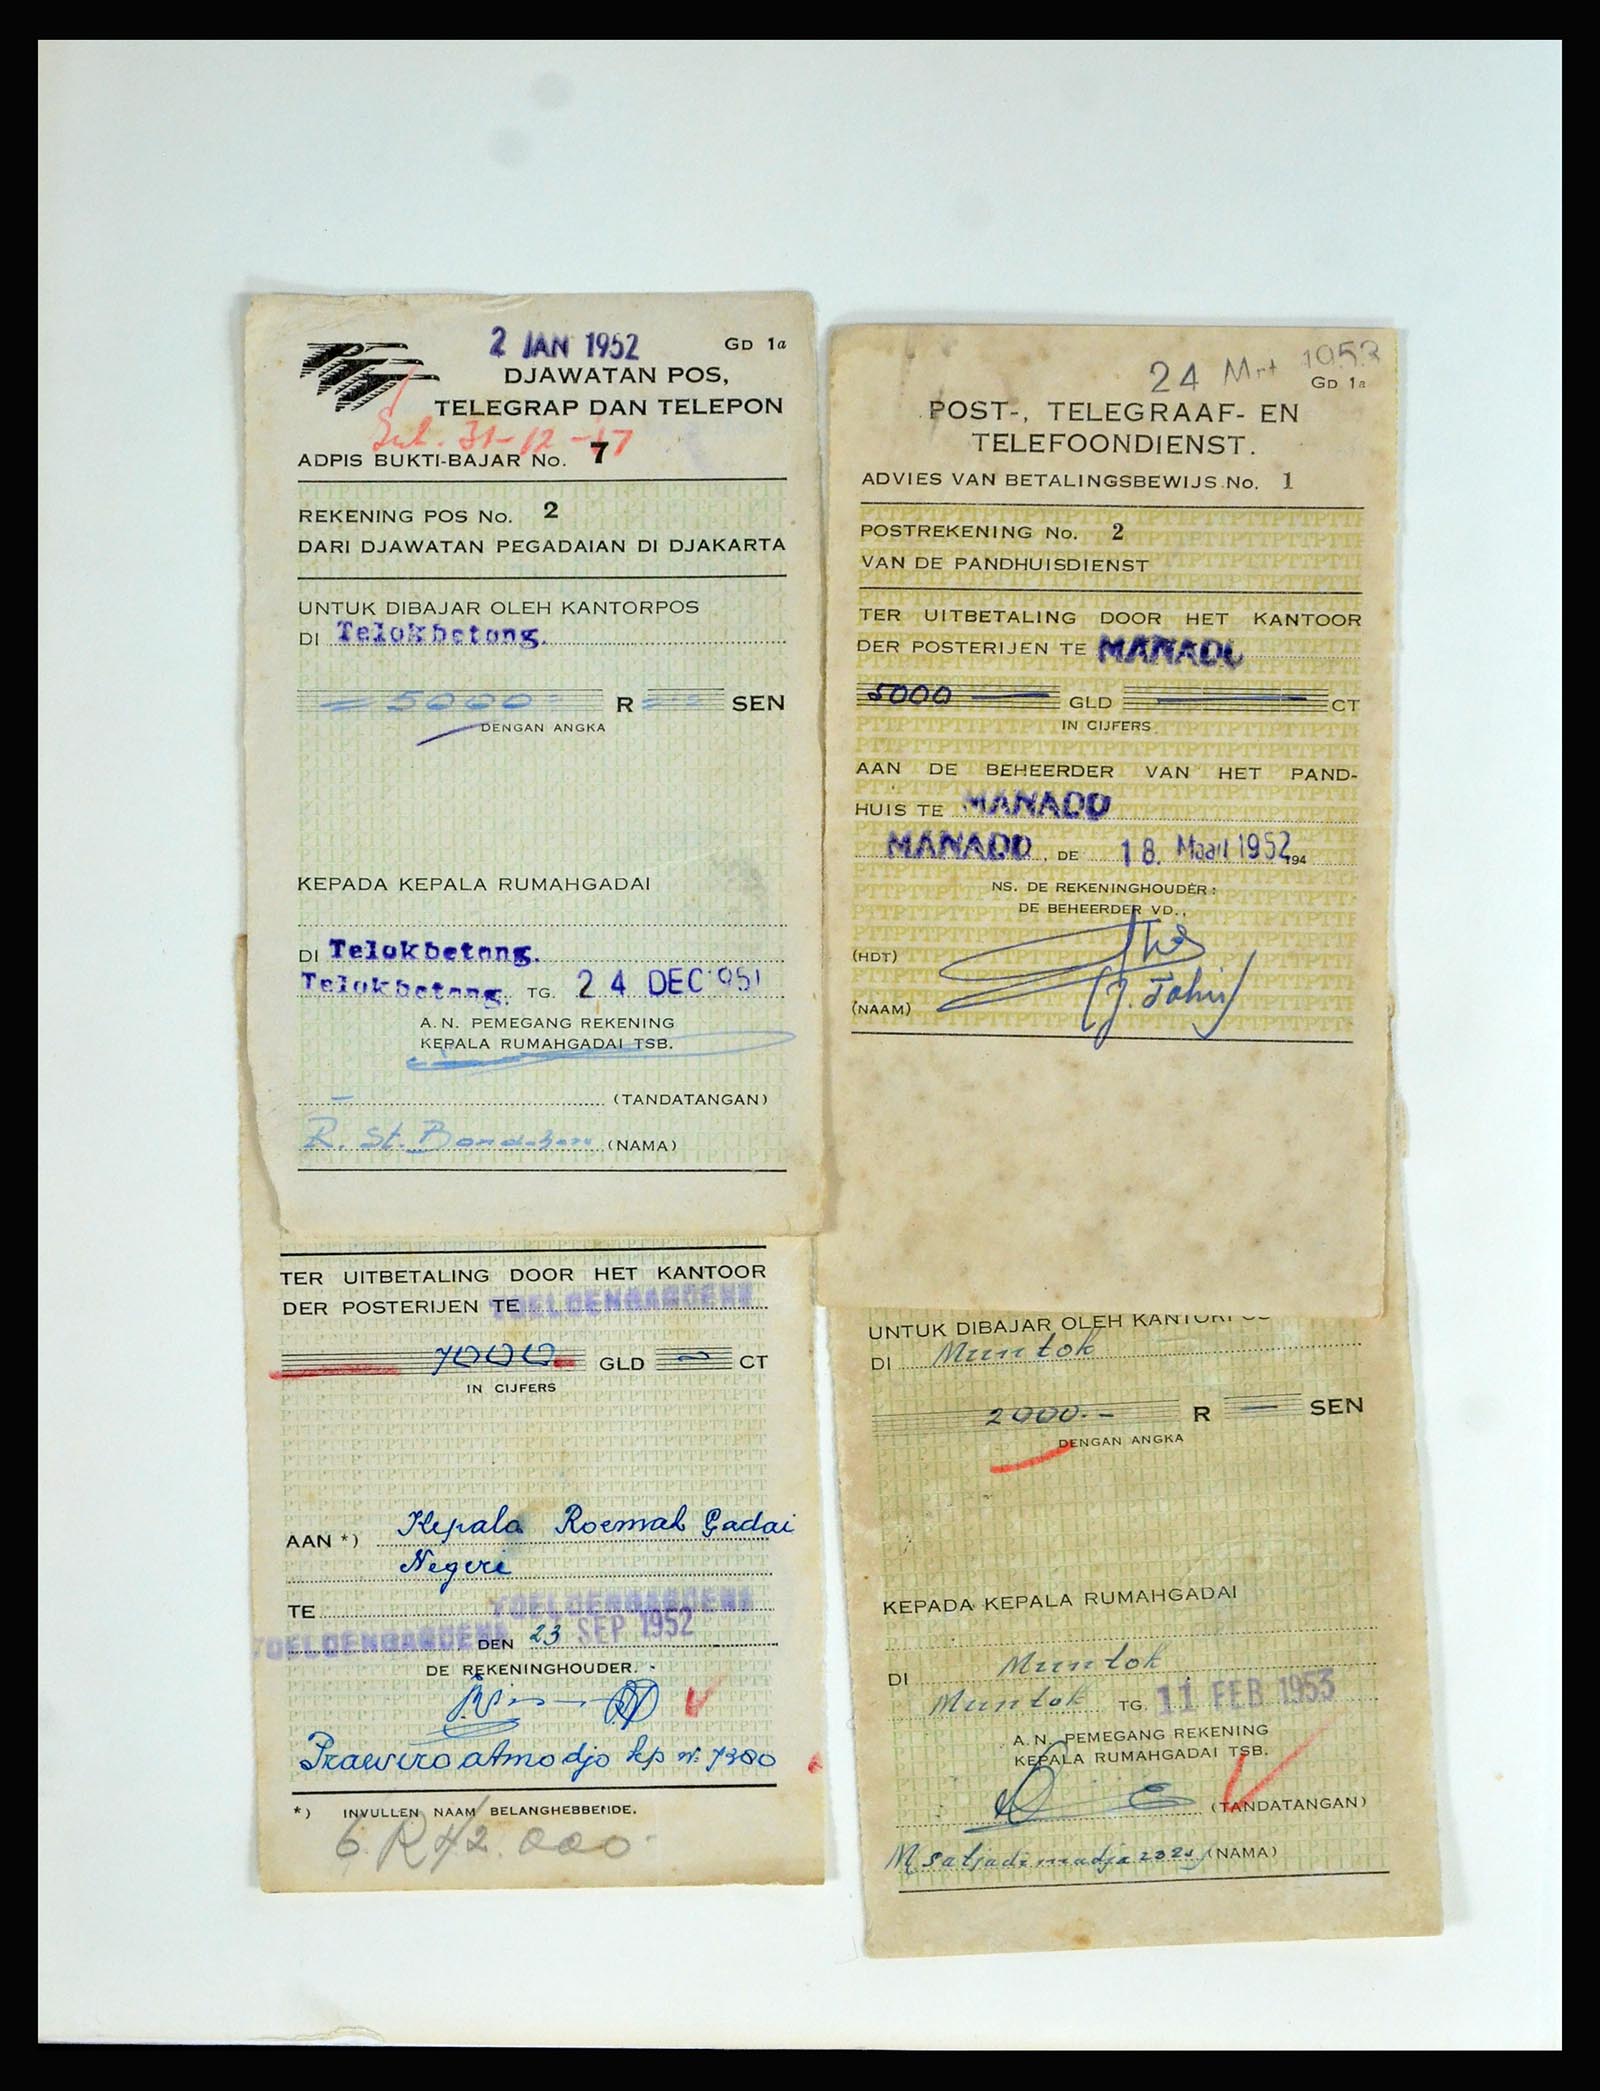 2 JAN 1952
GD 1a
DJAWATAN POS,
TELEGRAP DAN TELEPON
31-12-17
ADPIS BUKTI-BAJAR No. 7
REKENING POS No. 2
DARI DJAWATAN PEGADAIAN DI DJAKARTA
UNTUK DIBAJAR OLEH KANTORPOS
DI Telokbetong.
= 5000 = R = = SEN
DENGAN ANGKA
KEPADA KEPALA RUMAHGADAI
DI Telokbetong.
Telokbetong. TG. 24 DEC 1951
A.N. PEMEGANG REKENING
KEPALA RUMAHGADAI TSB.
(TANDATANGAN)
R. St. (NAMA)
24 Mrt 1953
GD 1a
POST-, TELEGRAAF- EN
TELEFOONDIENST.
ADVIES VAN BETALINGSBEWIJS No. 1
POSTREKENING No. 2
VAN DE PANDHUISDIENST
TER UITBETALING DOOR HET KANTOOR
DER POSTERIJEN TE MANADO
5000 GLD CT
IN CIJFERS
AAN DE BEHEERDER VAN HET PAND-
HUIS TE MANADO
MANADO, DE 18. Maart 1952 194
NS. DE REKENINGHOUDER:
DE BEHEERDER VD.,
(HDT)
(NAAM) (J. Tahir)
TER UITBETALING DOOR HET KANTOOR
DER POSTERIJEN TE
7000 GLD CT
IN CIJFERS
AAN *) Kepala Roemah Gadai
Negeri
TE
DEN 23 SEP 1952
DE REKENINGHOUDER.
Prawiroatmodjo kp no. 7380
*) INVULLEN NAAM BELANGHEBBENDE.
6. R 42.000.
UNTUK DIBAJAR OLEH KANTORPOS
DI Muntok
2000.- R — SEN
DENGAN ANGKA
KEPADA KEPALA RUMAHGADAI
DI Muntok
Muntok TG. 11 FEB 1953
A.N. PEMEGANG REKENING
KEPALA RUMAHGADAI TSB.
(TANDATANGAN)
(NAMA)